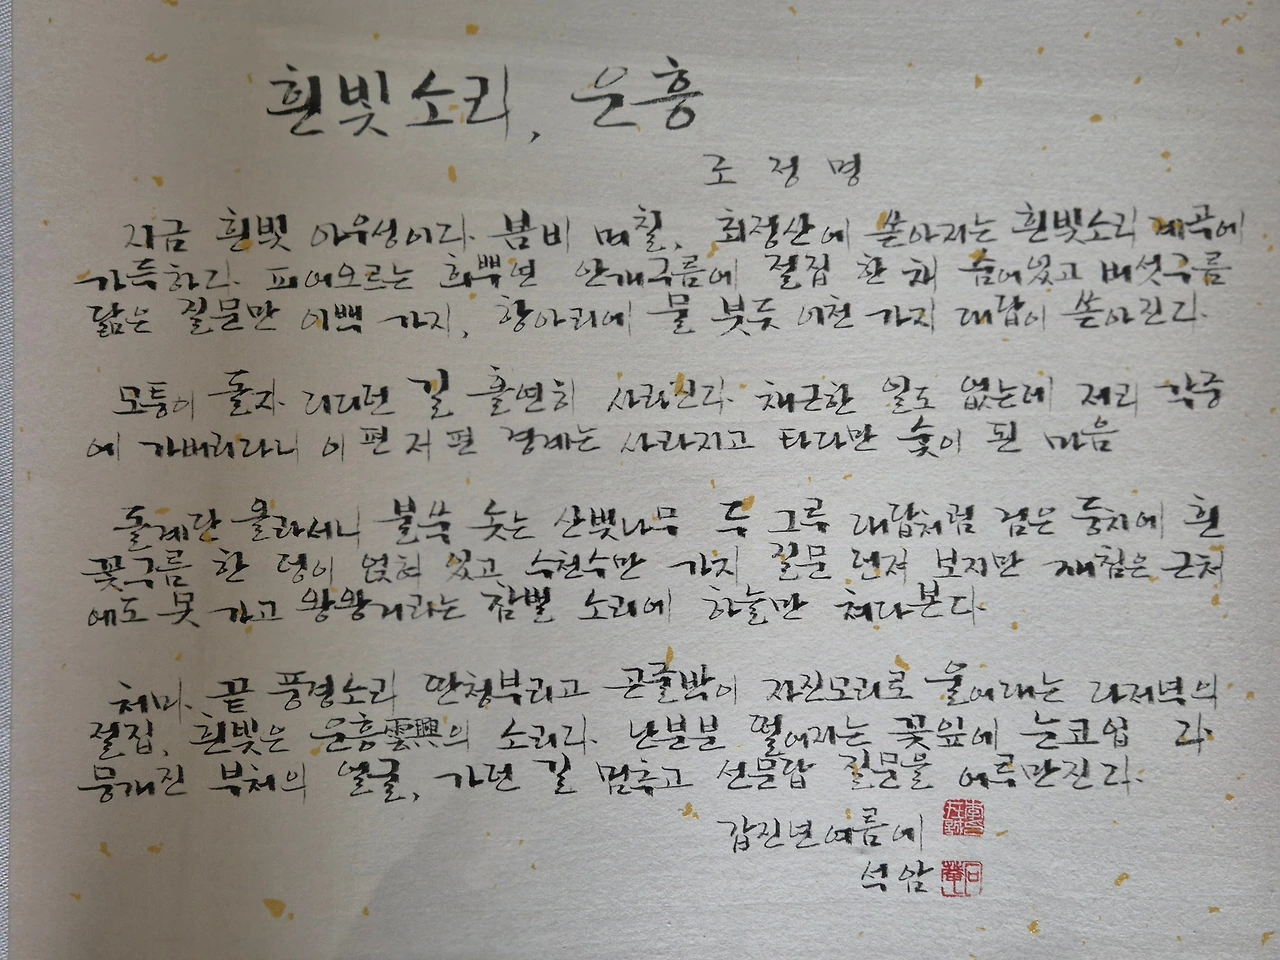 흰빛소리, 운흥
조정명
지금 흰빛 아우성이다. 봄비 며칠, 최정산에 쏟아지는 흰빛소리 계곡에
가득하다. 피어오르는 희뿌연 안개구름에 절집 한 채 숨어있고 버섯구름
닮은 질문만 이백 가지, 항아리에 물 붓듯 이천 가지 대답이 쏟아진다.
모퉁이 돌자 디디던 길 홀연히 사라진다. 채근한 일도 없는데 저리 각중
에 가버리다니 이편 저편 경계는 사라지고 타다만 숯이 된 마음
돌계단 올라서니 불쑥 솟는 산벚나무 두 그루 대답처럼 검은 둥치에 흰
꽃구름 한 덩이 얹혀 있고, 수천수만 가지 질문 던져 보지만 재첨은 근처
에도 못 가고 왕왕거리는 참벌 소리에 하늘만 쳐다본다.
처마 끝 풍경소리 단청부리고 곤줄박이 자진모리로 울어대는 다저녁의
절집, 흰빛은 운흥雲興의 소리다. 난분분 떨어지는 꽃잎에 눈코입 다
뭉개진 부처의 얼굴, 가던 길 멈추고 선문답 질문을 어루만진다.
갑진년여름에
석암